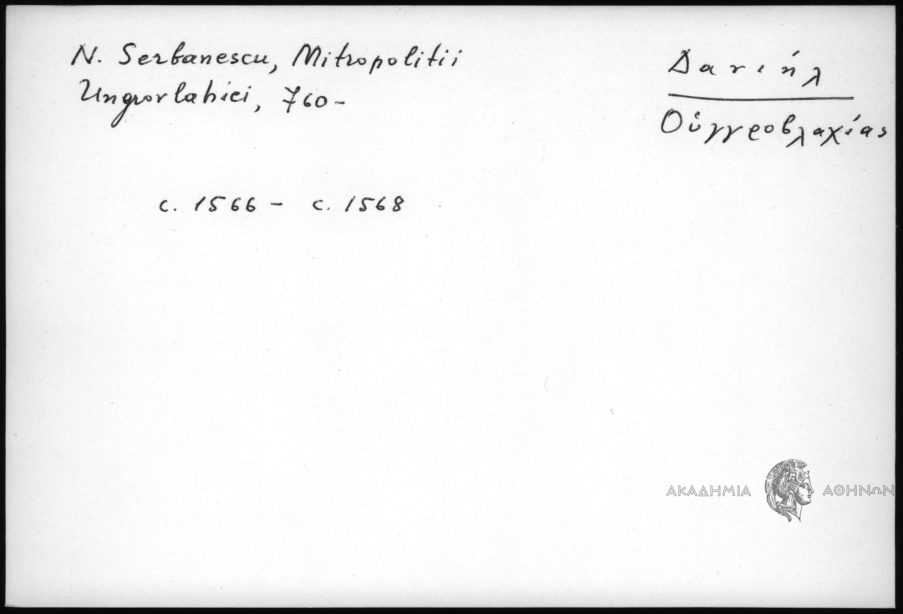 N. Serbanescu, Mitropolitii
Ungrovlahiei, 760-
Δανιήλ
Οὑγγροβλαχίας
c. 1566 - c. 1568
ΑΚΑΔΗΜΙΑ ΑΘΗΝΩΝ